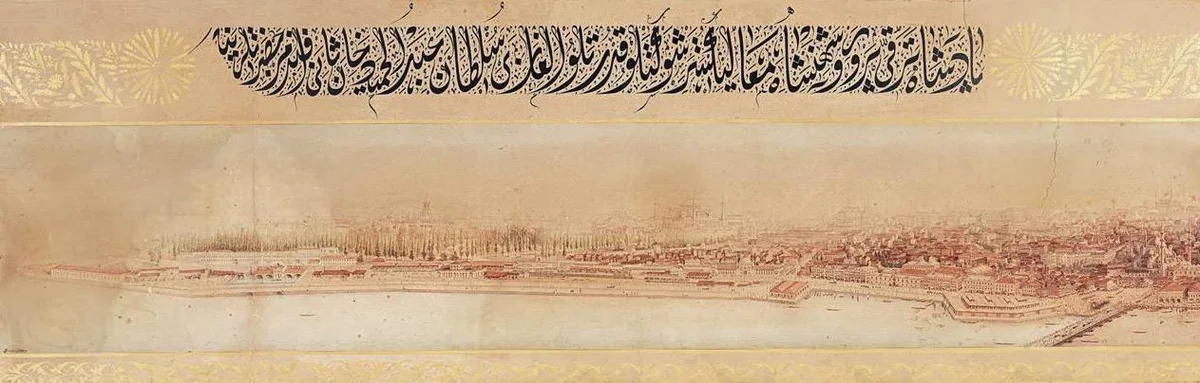 پادشاه ترقی پرور و شهنشاه معالی کستر شوکتلو قدرتلو الغازی سلطان عبد الحمید خان ثانی افندمز حضرتلرینه